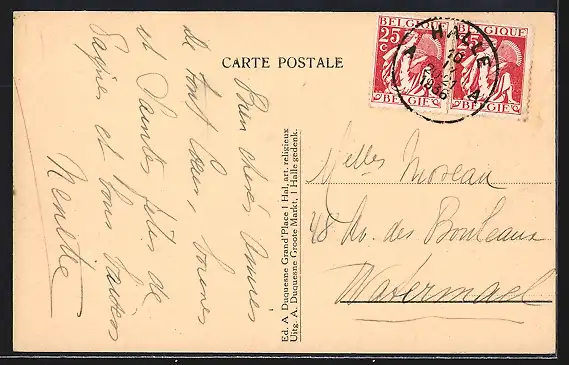 CARTE POSTALE
Bien chères Amies
de tout cœur, bonnes
et Saintes fêtes de
Pâques et bons baisers
BELGIQUE BELGIQUE
25 c 25
BELGIË BELGIË
HALLE
A A
1936
Ed. A. Duquesne Grand'Place 1 Hal, art. religieux
Uitg. A. Duquesne Groote Markt, 1 Halle gedenk.
Melles Moreau
48 Av. des Bouleaux
Watermael